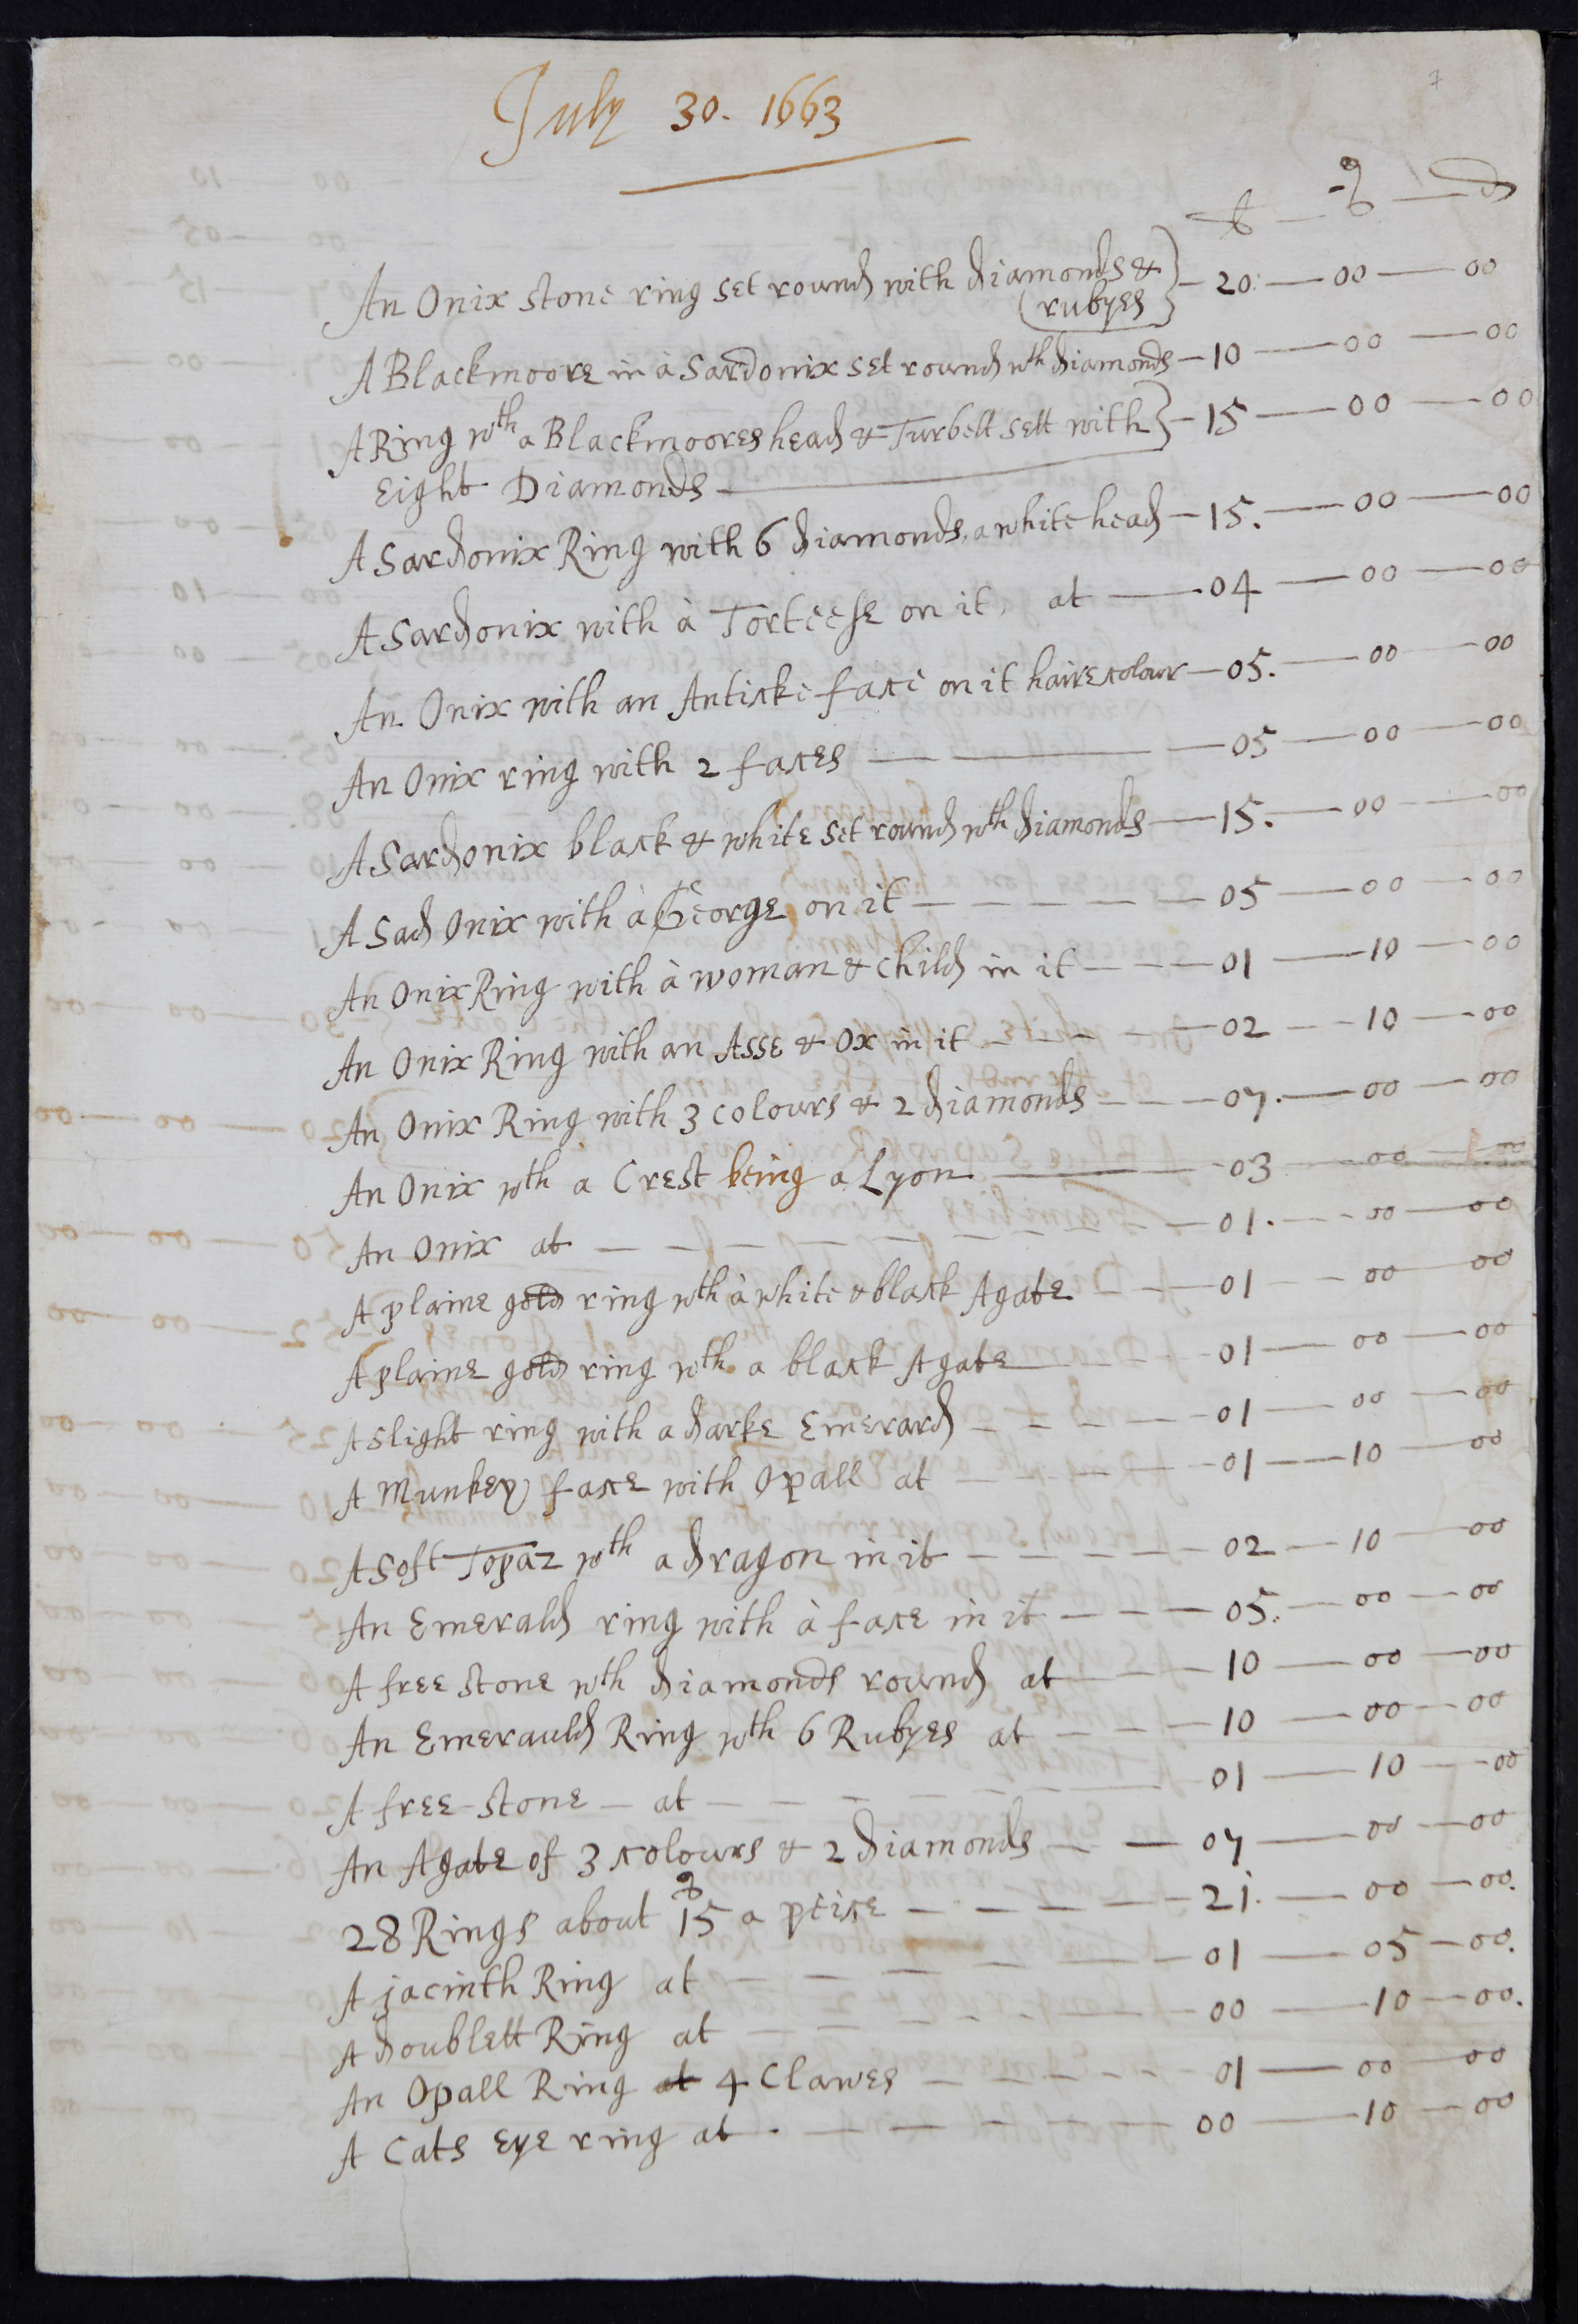 7
July 30. 1663
li — s — d
An Onix stone ring set round with diamonds & — 20 — 00 — 00
rubyes
A Blackmoore in à Sardonix set round wth diamonds — 10 — 00 — 00
A Ring wth a Blackmoores head & Turbett sett with — 15 — 00 — 00
Eight Diamonds —
A Sardonix Ring with 6 diamonds, a white head — 15. — 00 — 00
A Sardonix with à Torteese on it, at — 04 — 00 — 00
An Onix with an Anticke face on it haire colour — 05. — 00 — 00
An Onix ring with 2 faces — 05 — 00 — 00
A Sardonix black & white set round wth diamonds — 15. — 00 — 00
A Sad Onix with à George on it — 05 — 00 — 00
An Onix Ring with à woman & child in it — 01 — 10 — 00
An Onix Ring with an Asse & Ox in it — 02 — 10 — 00
An Onix Ring with 3 colours & 2 diamonds — 07. — 00 — 00
An Onix wth a Crest being a Lyon — 03 — 00 — 00
An Onix at — 01. — 00 — 00
A plaine gold ring wth à white & black Agate — 01 — 00 — 00
A plaine gold ring wth a black Agate — 01 — 00 — 00
A slight ring with a darke Emerard — 01 — 00 — 00
A Munkey face with Opall at — 01 — 10 — 00
A Soft Topaz wth a dragon in it — 02 — 10 — 00
An Emerald ring with à face in it — 05. — 00 — 00
A free stone wth diamonds round at — 10 — 00 — 00
An Emerauld Ring wth 6 Rubyes at — 10 — 00 — 00
A free-stone — at — 01 — 10 — 00
An Agate of 3 colours & 2 diamonds — 07 — 00 — 00
28 Rings about 15s a peice — 21. — 00 — 00.
A jacinth Ring at — 01 — 05 — 00.
A doublett Ring at — 00 — 10 — 00.
An Opall Ring at 4 Clawes — 01 — 00 — 00
A Cats Eye ring at — 00 — 10 — 00